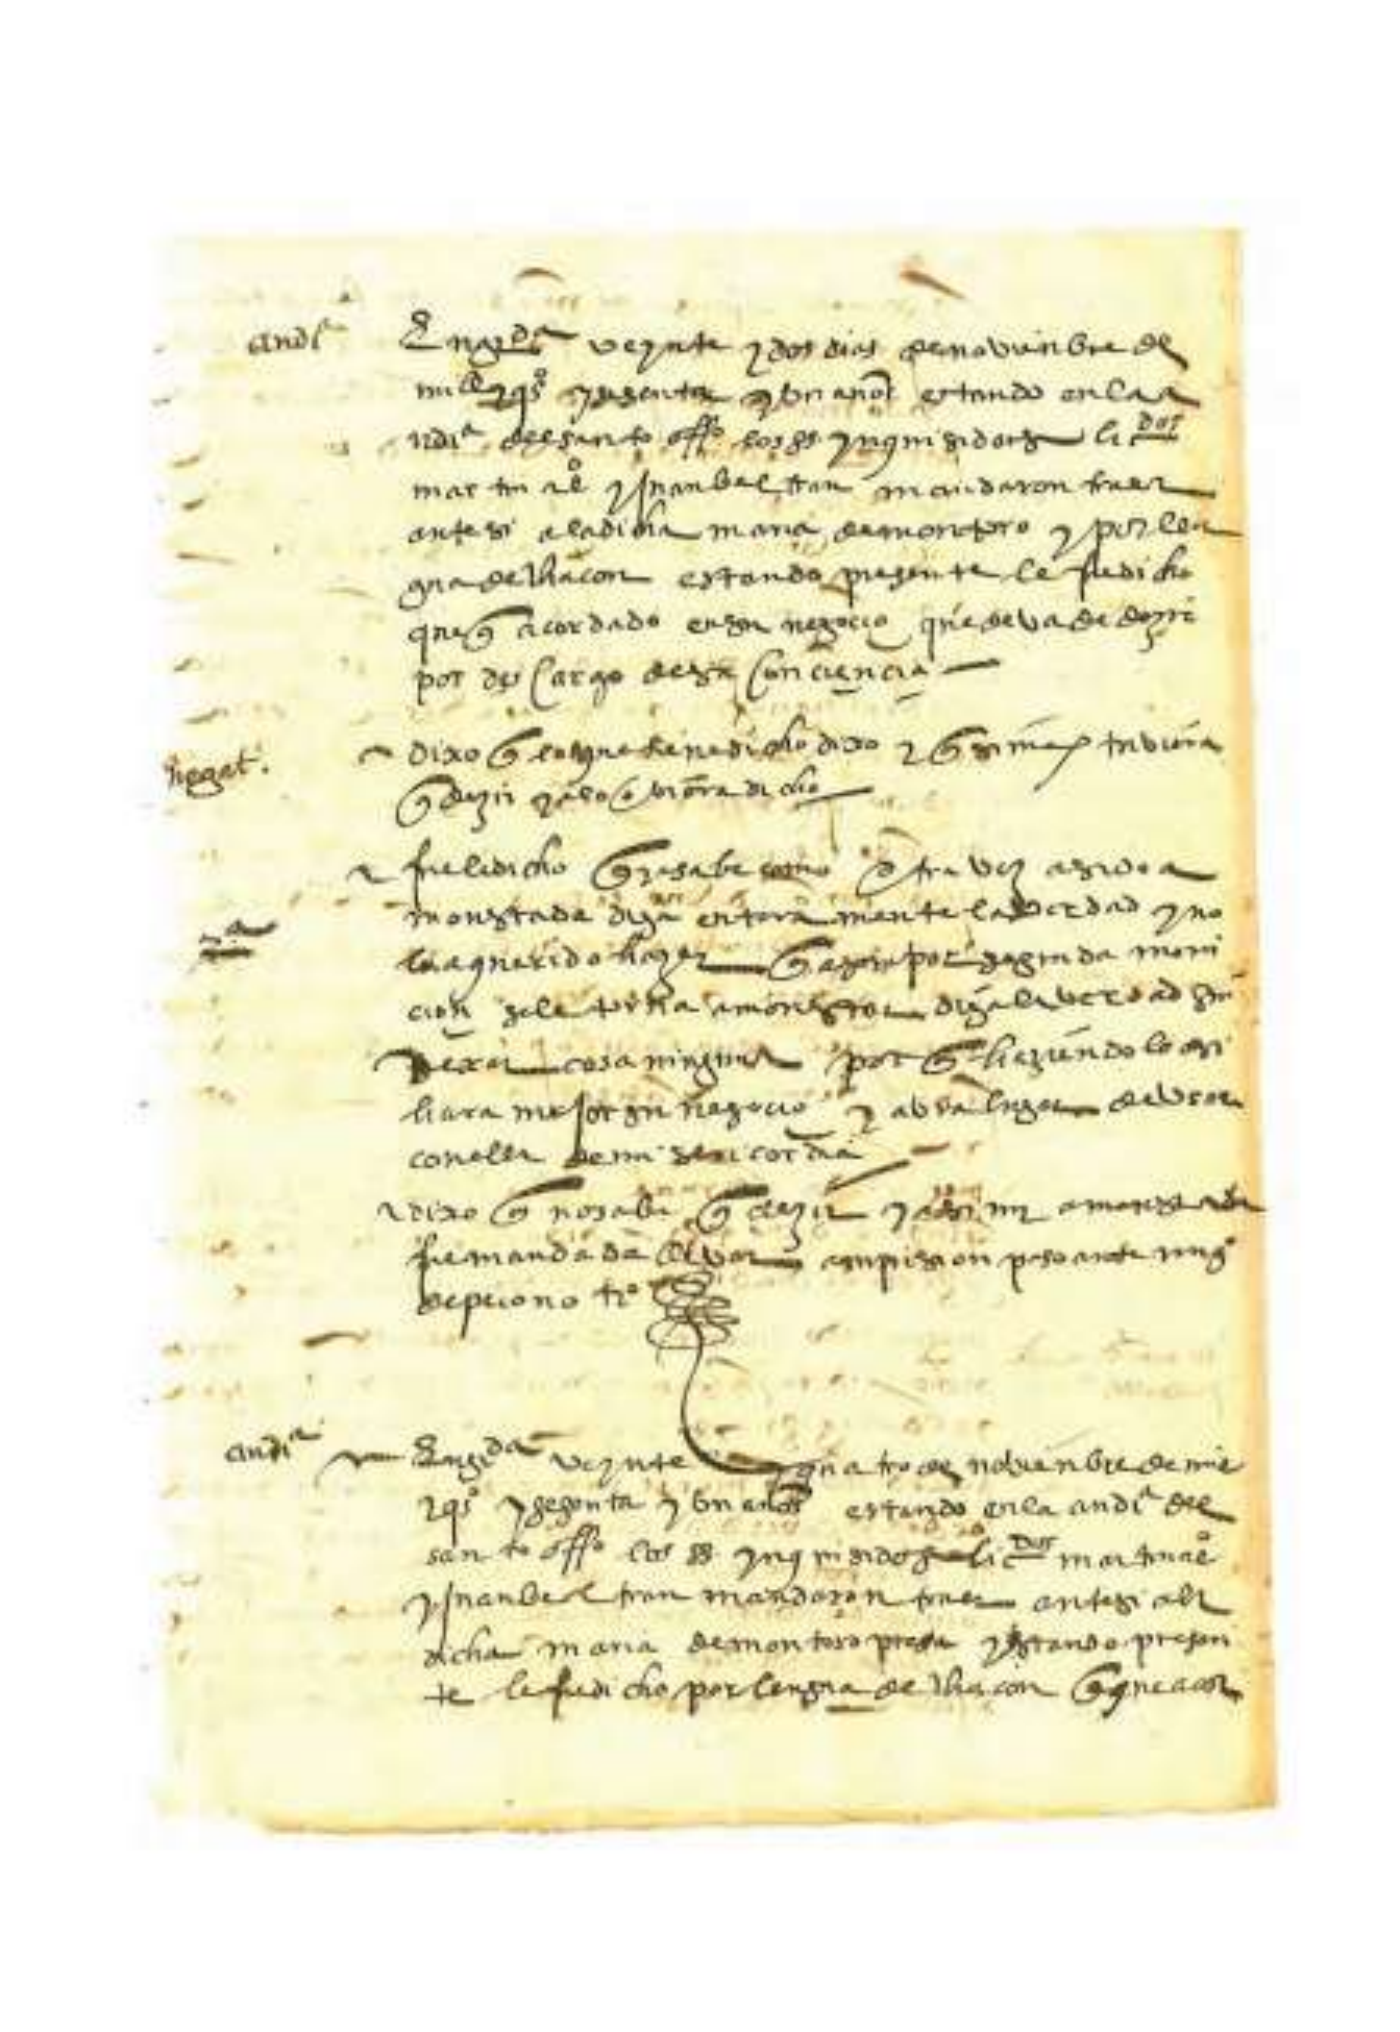 audiª
En gr̄da veynte y dos dias de novienbre de
mill y qºs y sesenta y un años estando en la a
udiª del santo offº los ss ynquisidores licdos
martin alº y juan beltran mandaron traer
ante si a la dicha maria de montoro y por len
gua de chacon estando presente le fue dicho
que q̃ a acordado en su negocio que deva de dezir
por descargo de su conciencia
negat.
dixo q̃ lo que tiene dicho dixo y q̃ si mas tuviera
q̃ dezir ya lo oviera dicho
fue le dicho q̃ ya sabe como otra vez a sido a
monestada diga enteramente la verdad y no
2ª
lo a querido hazer q̃ agora por segunda moni
cion se le torna a amonestar diga la verdad sin
dexar cosa ninguna por q̃ haziendolo asi
hara mejor su negocio y abra lugar de usar
con ella de misericordia
dixo q̃ no sabe q̃ dezir y asi muy amonestada
fue mandada llevar a su prision paso ante mi
 no
audiª
En gr̄da veynte y quatro de novienbre de mil
y qºs y sesenta y un años estando en la audiª del
santo offº los ss ynquisidores licdos martin alº
y juan beltran mandaron traer ante si a la
dicha maria de montoro presa y estando presen
te le fue dicho por lengua de chacon q̃ que a acor